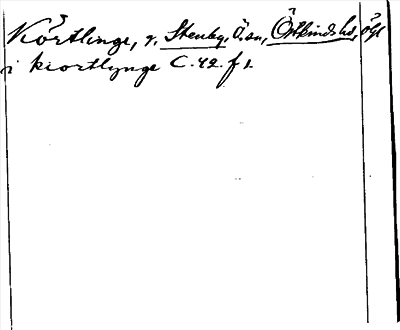 Körtlinge, g. Stenby, Ö. sn, Östkinds hd, Ögl
i kiortlynge C. 42. f 1.